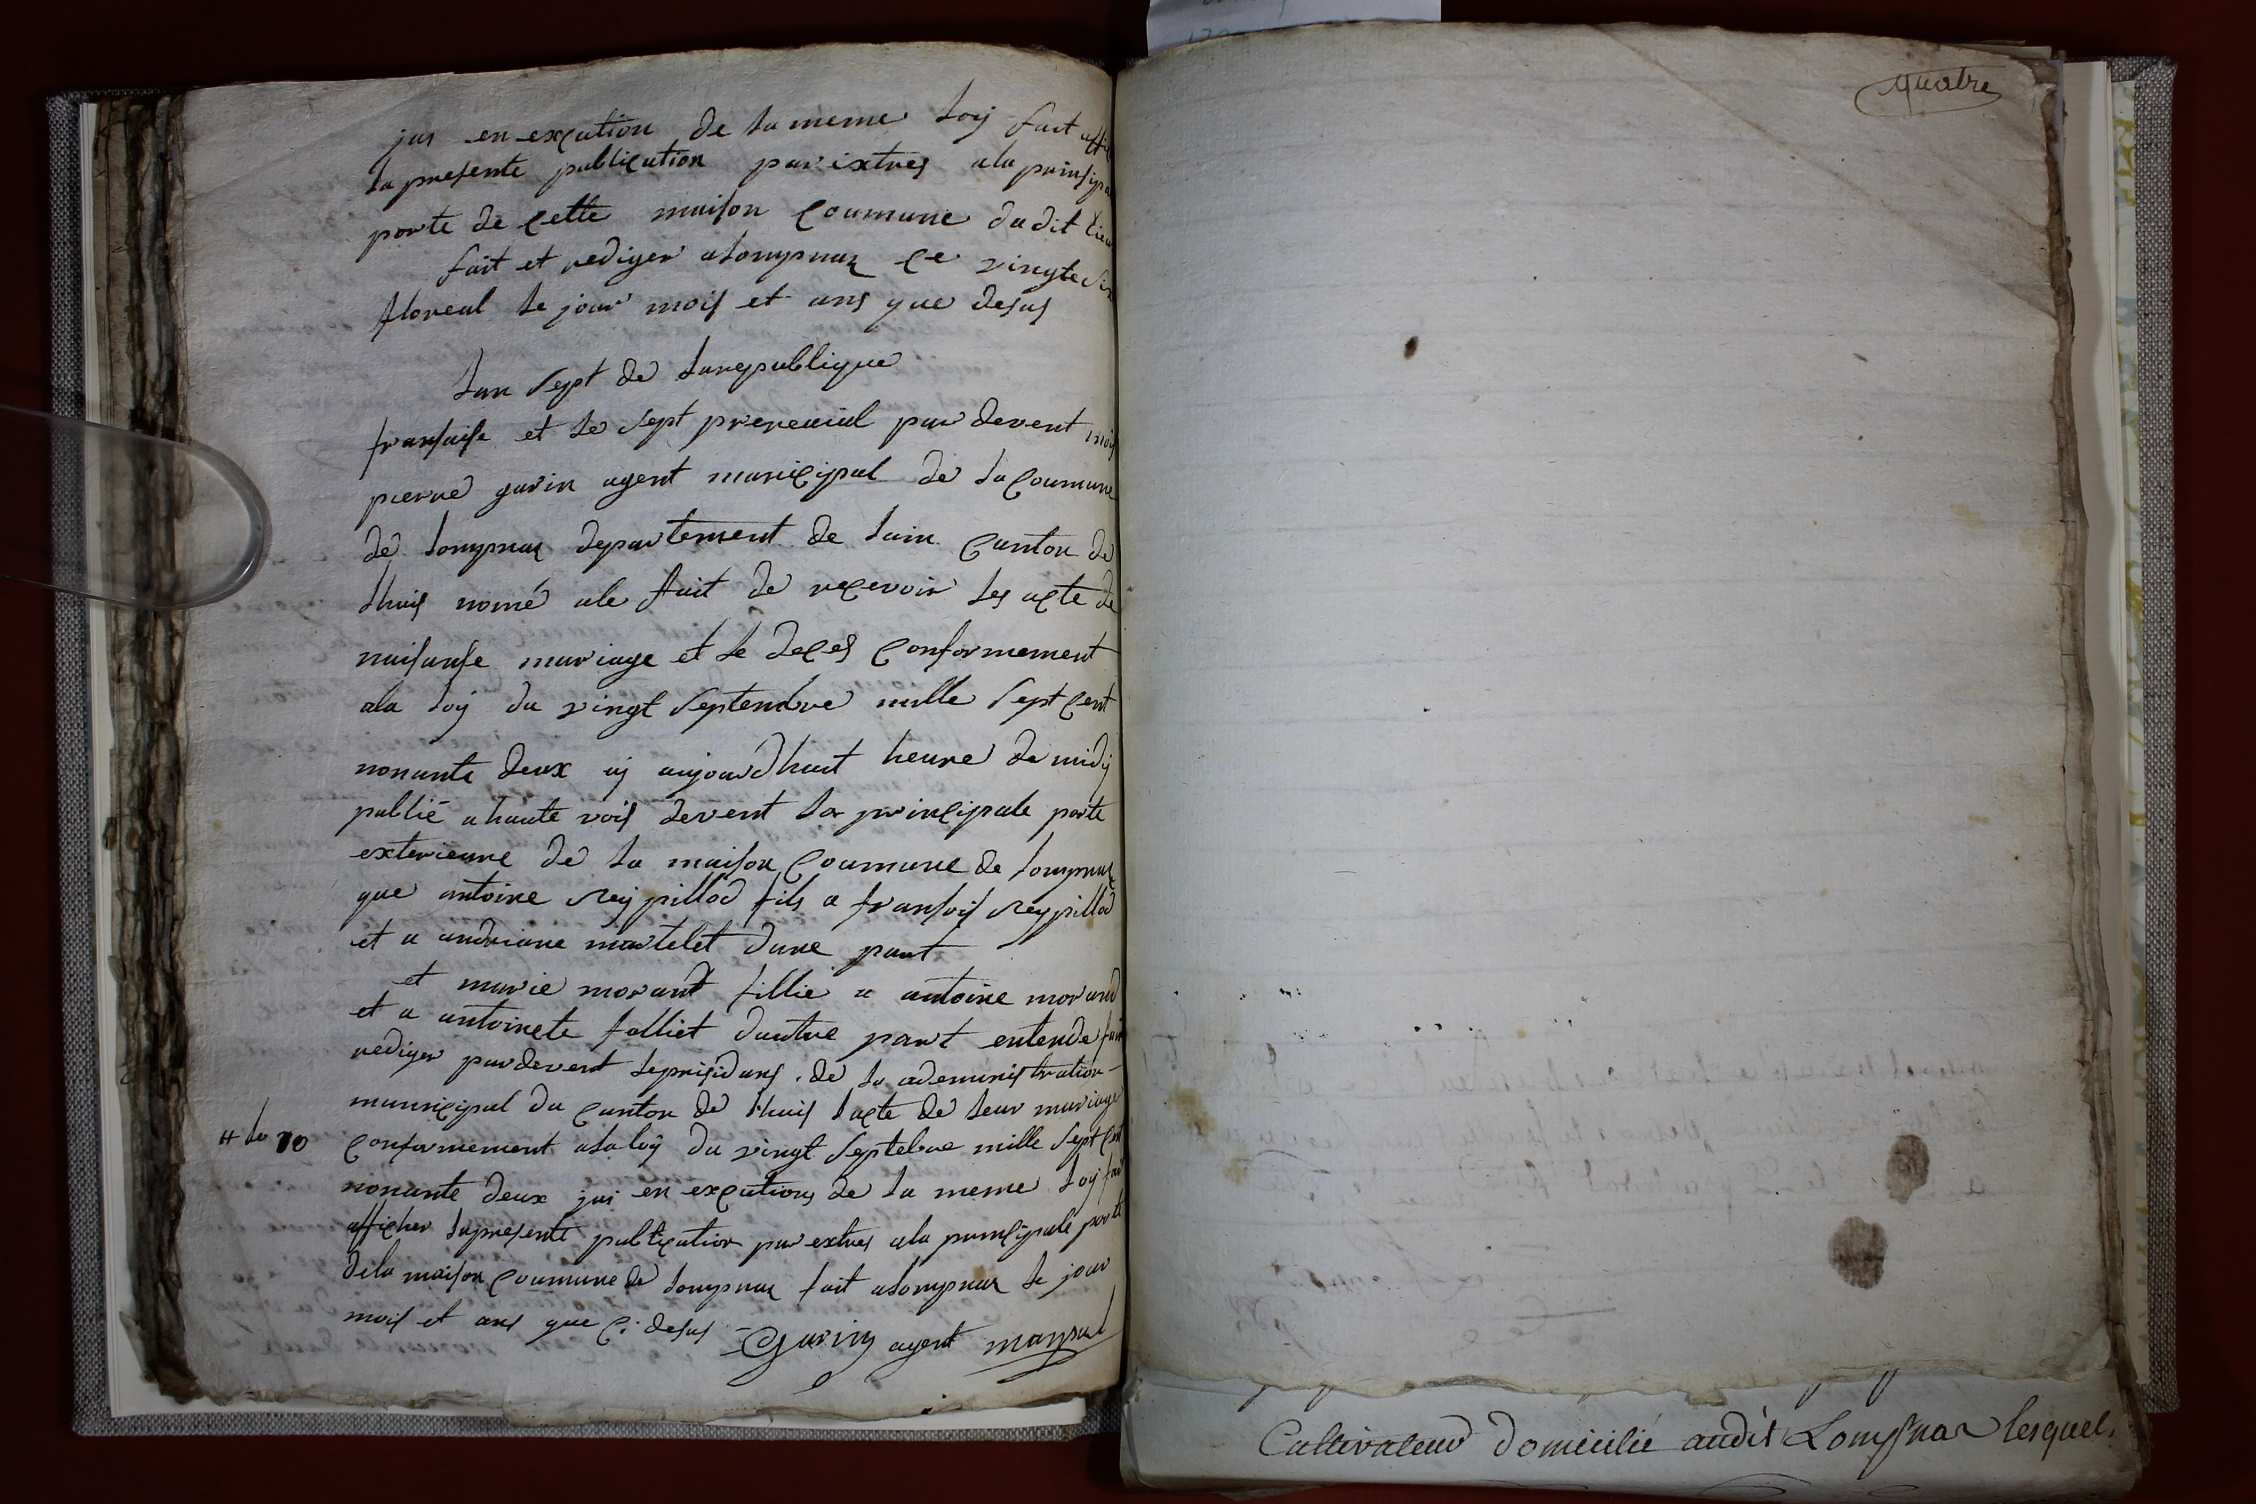 jai en execution de la meme loy fait
la presente publication par ixtres a la prinsipa
porte de cette maison Coumune du dit lieu
fait et rediger a lonpnaz ce vingte six
floreal le jour mois et ans que desus
Lan Sept de la republique
fransaise et le sept prereaial par devent moy
pierre garin agent municipal de la Coumune
de lonpnaz departement de lain Canton de
lhuis nomé a le fait de recevoir les acte de
naisanse mariage et le deces Conformement
a la loy du vingt Septenbre mille Sept Cent
nonante deux aj aujourdhuit heure de midy
publié a haute vois devent la principale porte
exterieure de la maison Coumune de lonpnaz
que antoine Reypillod fils a fransois Reypillod
et a andriane martelet dune part
et marie morant fillie a antoine morand
et a antoinete folliet dautre part entende fair
rediger pardevent le prisidans de la administration
municipal du Canton de lhuis lacte de leur mariage
# le 10
Conformement a la loy du vingt Septebre mille Sept Cent
nonante deux jai en execution de la meme loy fait
afficher la presente publication par extres a la principale porte
de la maison Coumune de lonpnaz fait a lonpnaz le jour
mois et ans que Ci desus Garin agent manpal
quatre
Cultivateur domicilié audit Lompnaz lesquels